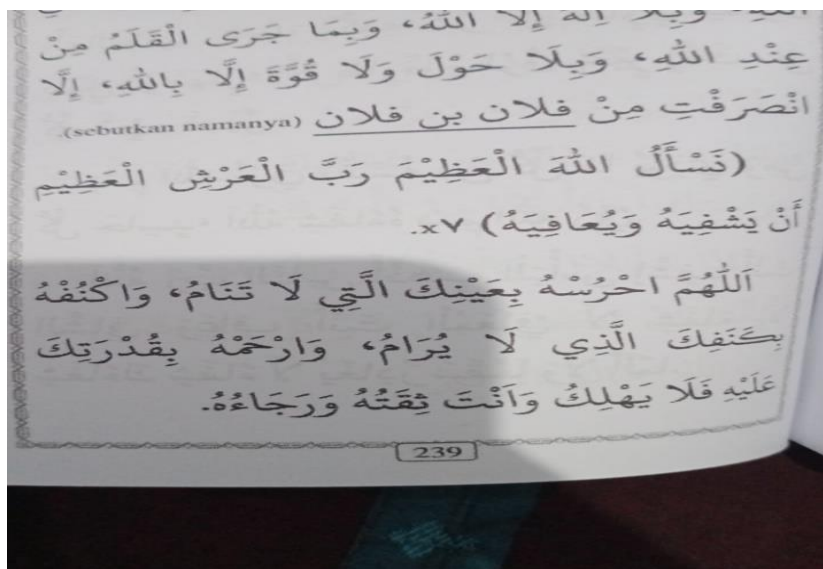 وَبِلَا اِلٰهَ اِلَّا اللّٰهُ، وَبِمَا جَرَى الْقَلَمُ مِنْ
عِنْدِ اللّٰهِ، وَبِلَا حَوْلَ وَلَا قُوَّةَ إِلَّا بِاللّٰهِ، إِلَّا
انْصَرَفْتِ مِنْ فلان بن فلان (sebutkan namanya).
(نَسْأَلُ اللّٰهَ الْعَظِيْمَ رَبَّ الْعَرْشِ الْعَظِيْمِ
أَنْ يَشْفِيَهُ وَيُعَافِيَهُ) x٧.
اَللّٰهُمَّ احْرُسْهُ بِعَيْنِكَ الَّتِي لَا تَنَامُ، وَاكْنُفْهُ
بِكَنَفِكَ الَّذِي لَا يُرَامُ، وَارْحَمْهُ بِقُدْرَتِكَ
عَلَيْهِ فَلَا يَهْلِكُ وَاَنْتَ ثِقَتُهُ وَرَجَاءُهُ.
239